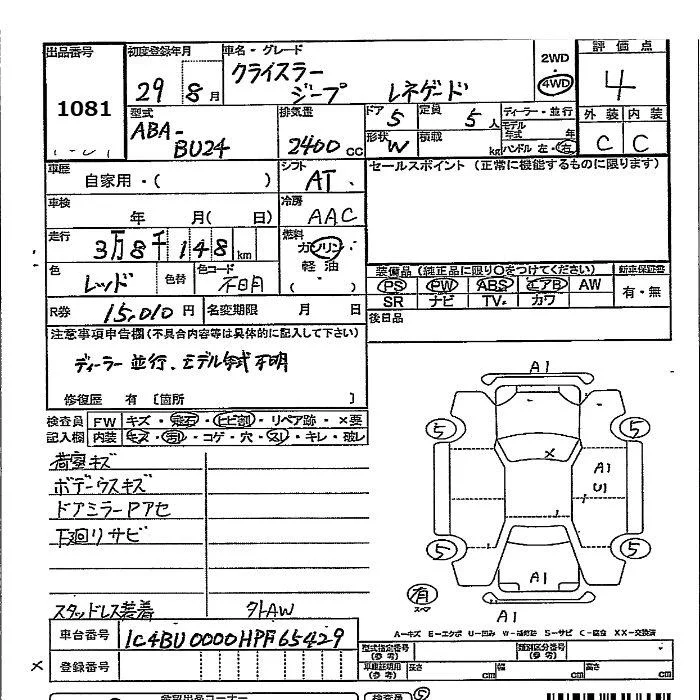 出品番号 初度登録年月 車名・グレード 2WD・4WD 評価点
1081 29 8月 クライスラー ジープ レネゲード 4
型式 ABA-BU24 排気量 2400cc ドア 5 定員 5人 ディーラー・並行 外装 内装
形状 W 積載 kg モデル年式 年 ハンドル 左・右 C C
車歴 自家用・( ) シフト AT セールスポイント(正常に機能するものに限ります)
車検 年 月( 日) 冷房 AAC
走行 3万8千148km 燃料 ガソリン 軽油 ( )
色 レッド 色替 色コード 不明
装備品(純正品に限り○をつけてください) 新車保証書
PS PW ABS エアB AW 有・無
SR ナビ TV カワ
R券 15,010円 名変期限 月 日 後日品
注意事項申告欄(不具合内容等は具体的に記入して下さい)
ディーラー並行、モデル年式不明
修復歴 有〔箇所 〕
検査員 FW キズ・飛石・ヒビ割・リペア跡・×要
記入欄 内装 キズ・汚レ・コゲ・穴・スレ・キレ・破レ
荷室キズ
ボデーウスキズ
ドアミラーPアセ
下廻リサビ
スタッドレス装着 外AW
A1
5 5
X A1
U1
5 5
A1
有 スペア
A1
A-キズ E-エクボ U-凹み W-補修跡 S-サビ C-腐食 XX-交換済
車台番号 1C4BU0000HPF65429
型式指定番号(参考) 類別区分番号(参考)
× 登録番号
車庫証明用(参考) 長さ cm 幅 cm 高さ cm
参習出品コーナー 検査員 5